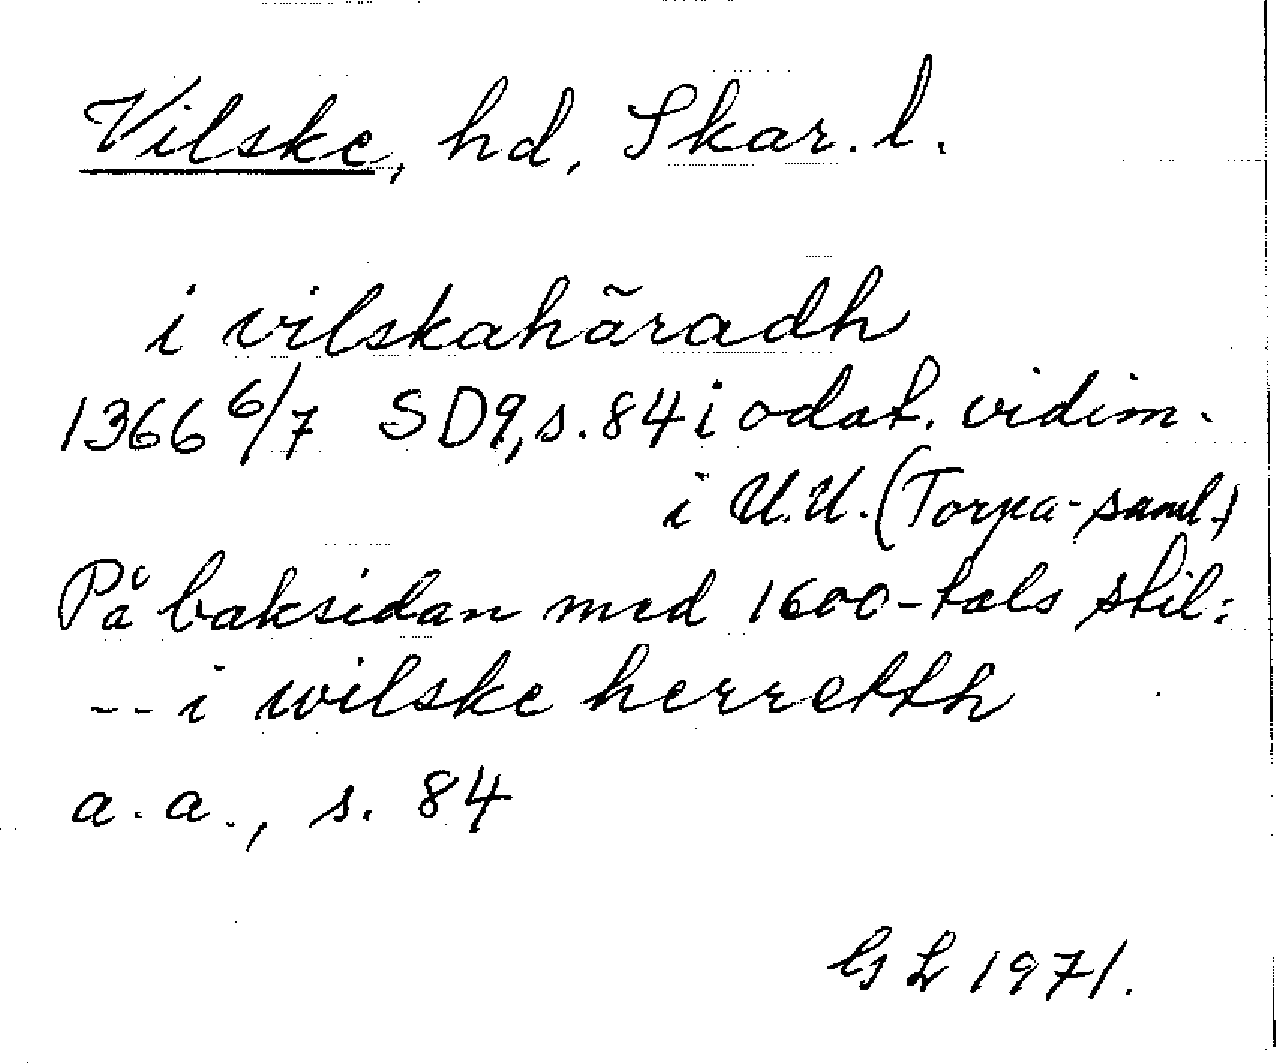 Vilske, hd, Skar. l.
i vilskahäradh
1366 6/7 SD9, s. 84 i odat. vidim.
i U.U. (Torpa-saml.)
På baksidan med 1600-tals stil:
-- i wilske herretth
a. a., s. 84
GL 1971.